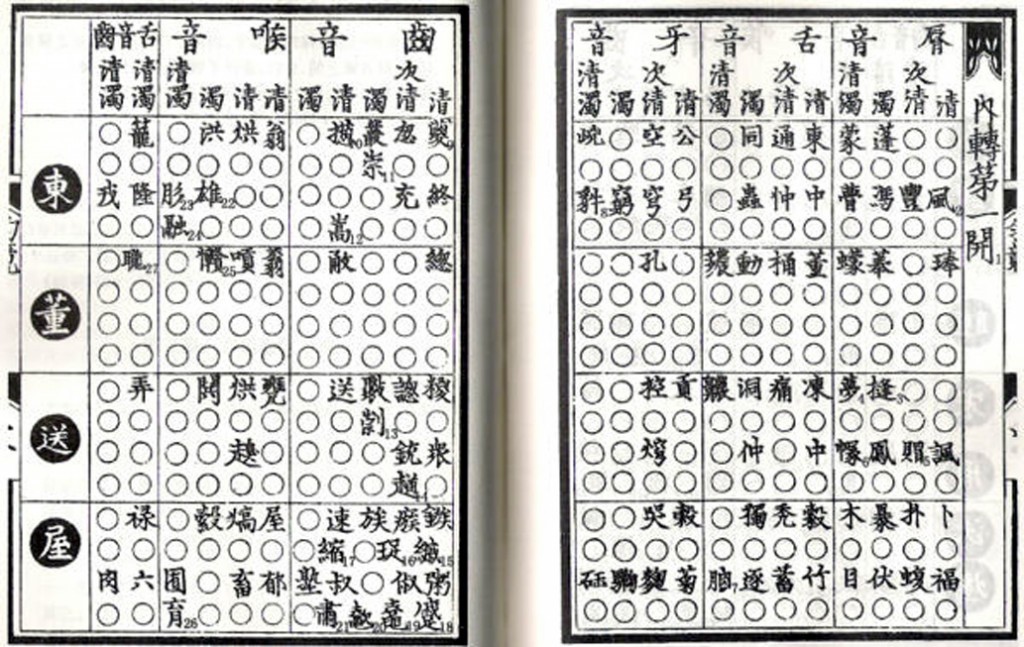 內轉第一開
脣音
清 ○○風○ 琫○○○ ○○諷○ 卜○福○
次清 ○○豐○ ○○○○ ○○賵○ 扑○蝮○
濁 蓬○馮○ 菶○○○ 縫○鳳○ 暴○伏○
清濁 蒙○瞢○ 蠓○○○ 夢○幪○ 木○目○
舌音
清 東○中○ 董○○○ 凍○中○ 穀○竹○
次清 通○忡○ 桶○○○ 痛○○○ 禿○蓄○
濁 同○蟲○ 動○○○ 洞○仲○ 獨○逐○
清濁 ○○○○ ○○○ 齈○○○ ○○○
牙音
清 公○弓○ ○○○○ 貢○○○ 穀○菊○
次清 空○穹○ 孔○○○ 控○焪○ 哭○麴○
濁 ○○窮○ ○○○○ ○○○○ ○○○
清濁 ○○ ○○○○ ○○○○ ○○砡○
齒音
清 ○終○ 總○○○ 糉○衆○ 鏃 粥
次清 怱○充○ ○○○○ 謥○銃 瘯珿俶
濁 叢崇○○ ○○○○ ○○ 族○○
清 ○○嵩 ○○○ 送○○○ 速縮叔肅
濁 ○○○○ ○○○○ ○○○○ ○○塾○
喉音
清 翁○○○ 蓊○○○ 甕○○○ 屋○郁○
清 烘○○○ 嗊○○○ 烘○○ 熇○畜○
濁 洪○雄○ ○○○ 閧○○○ 縠○○○
清濁 ○○肜融 ○○○○ ○○○○ ○○囿育
舌音齒
清濁 籠○隆○ ○○○ 弄○○○ 祿○六○
清濁 ○○戎○ ○○○○ ○○○○ ○○肉○
東
董
送
屋